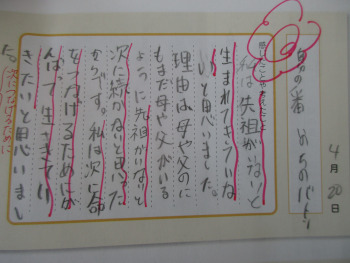 4月20日
命の番 いのちのバトン
感じたこと・考えたこと
私は先祖がいないと
生まれてきていな
いと思いました。
理由は母や父のに
もまた母や父がいる
ように先祖がいないと
次に続かないと思った
からです。私は次に命
をつなげるためにが
んばって生きてい
きたいと思いまし
た。
次につなげるために